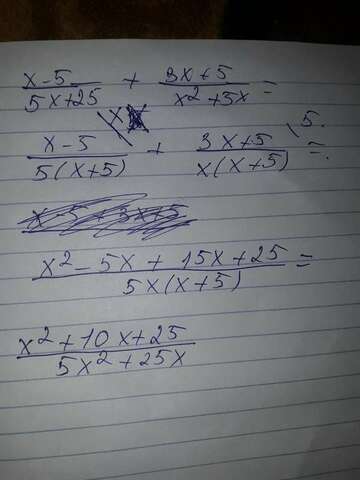 x-5/5x+25 + 3x+5/x²+5x =
x-5/5(x+5) \x + 3x+5/x(x+5) \5. =.
x²-5x+15x+25/5x(x+5) =
x²+10x+25/5x²+25x